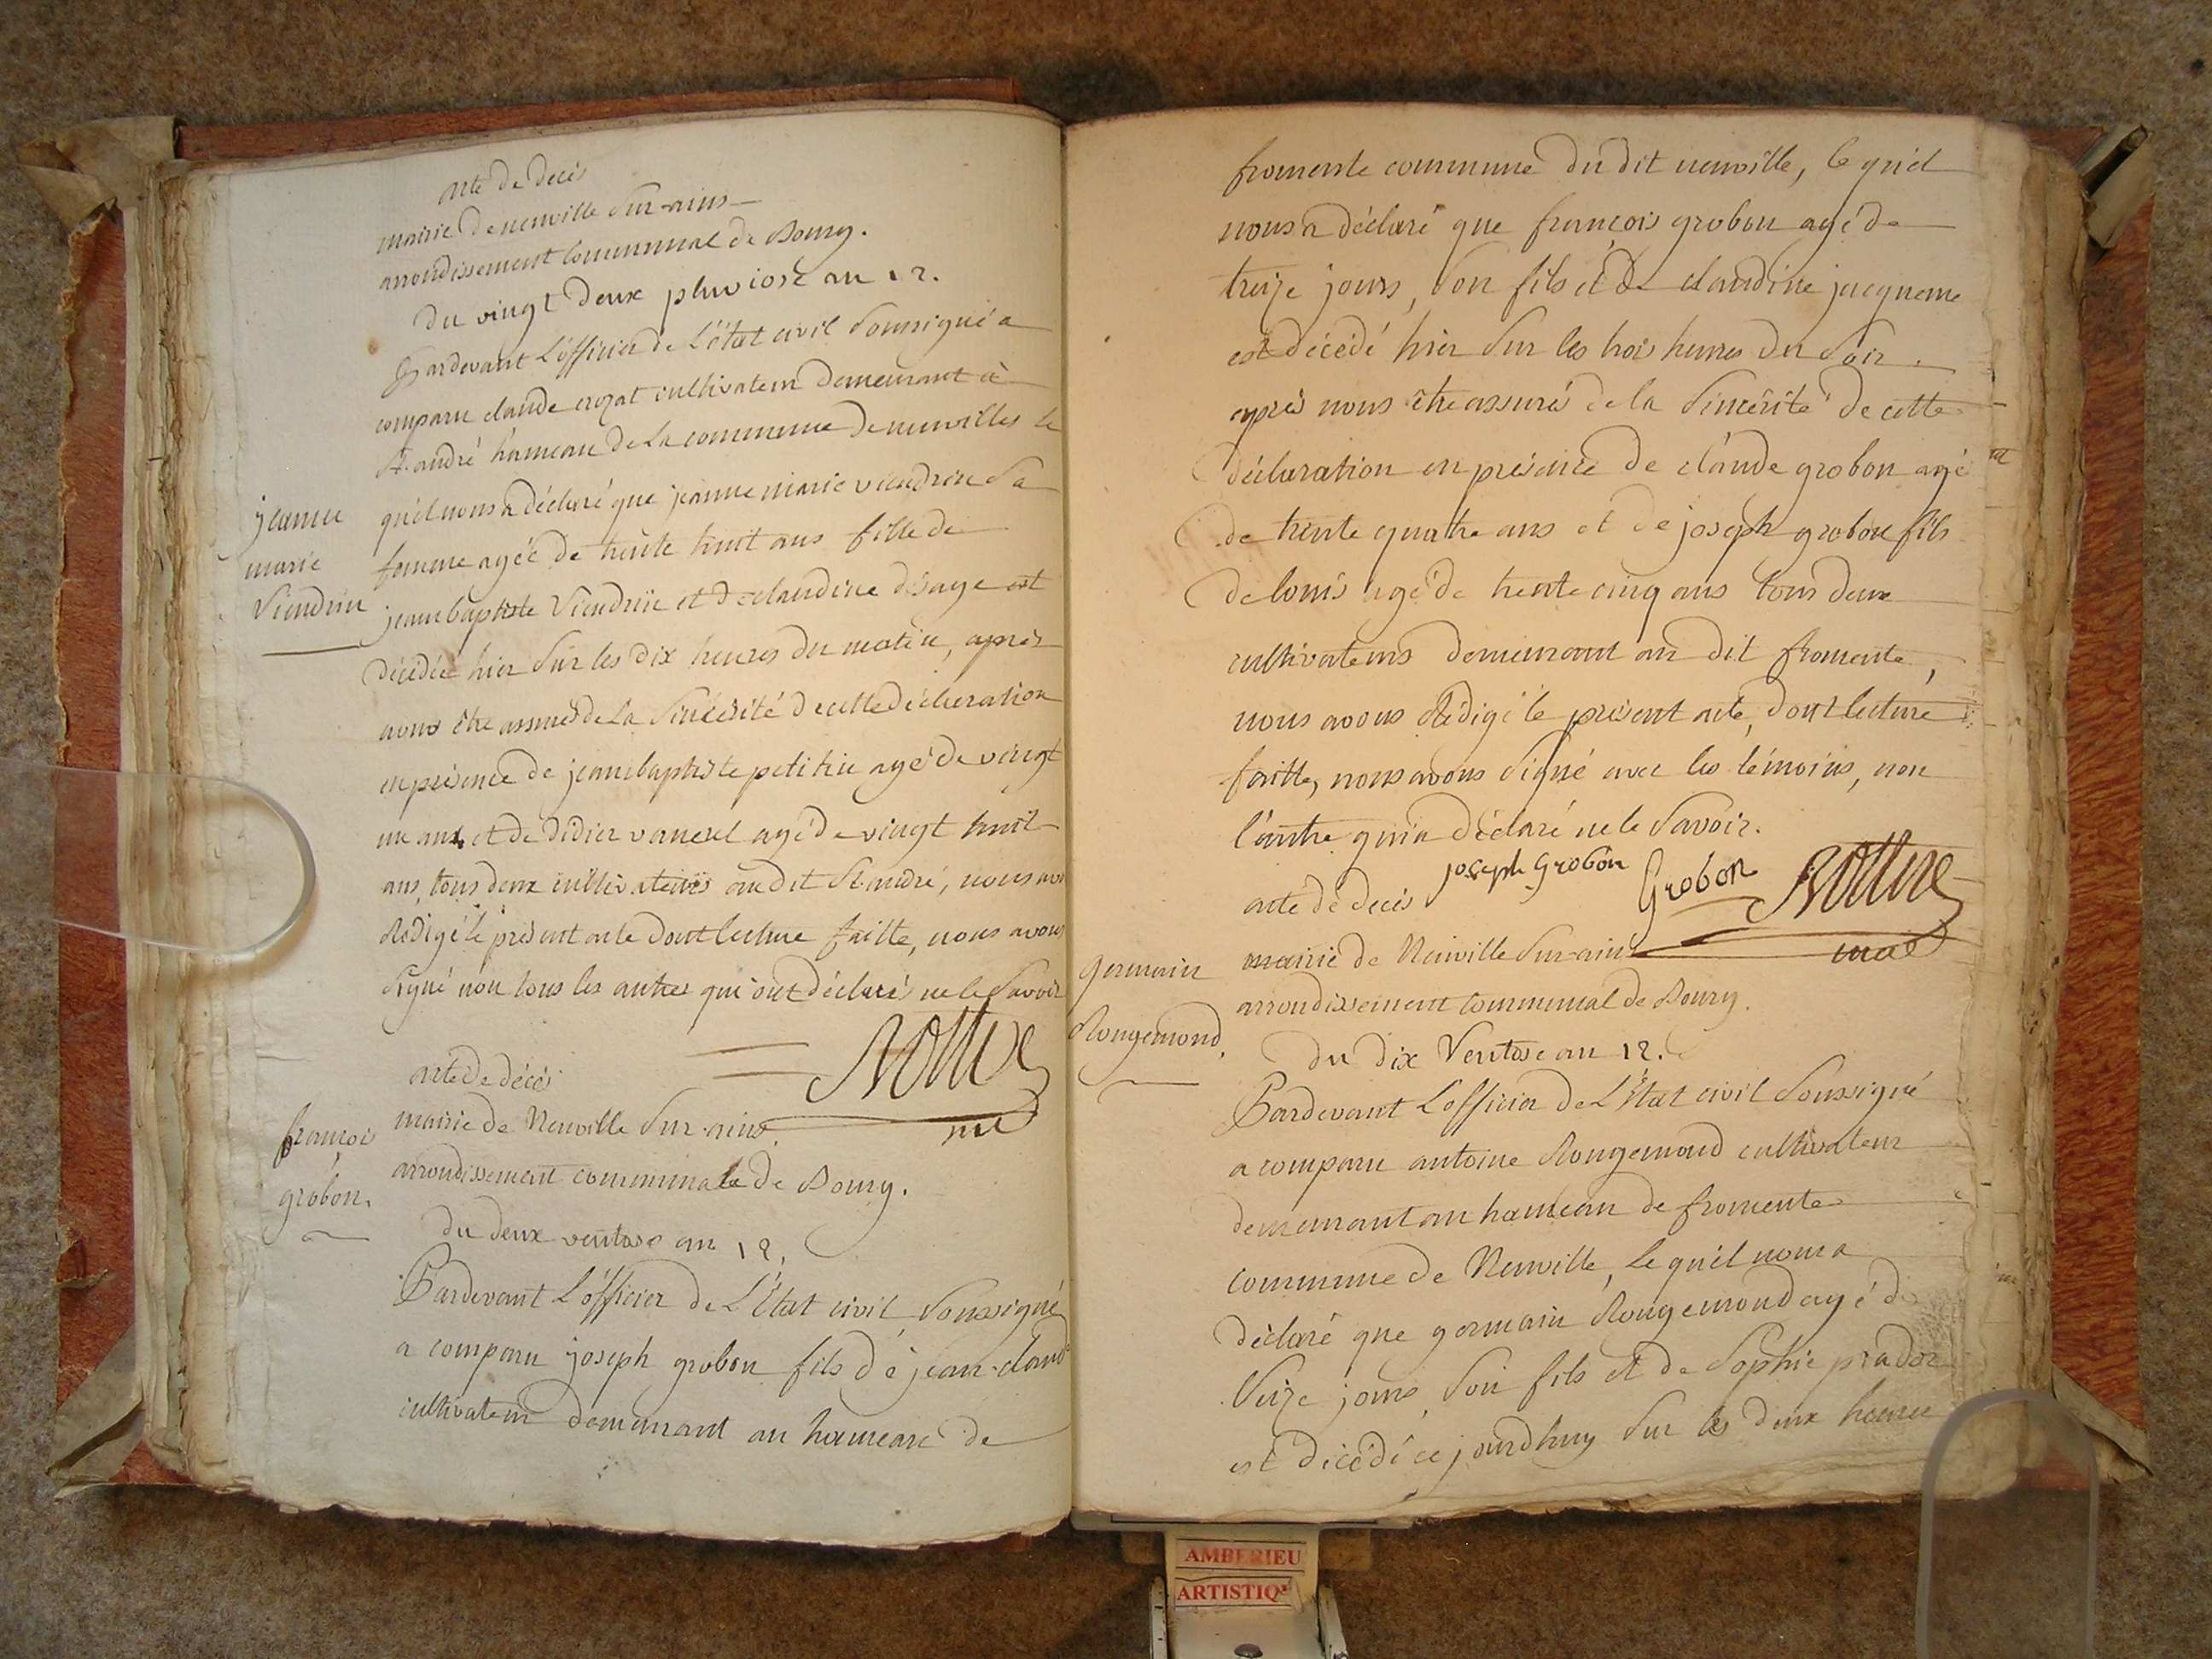 acte de decès
mairie de neuville sur-ains
arrondissement communal de Bourg.
du vingt deux pluviose an 12.
Pardevant L'officier de L'état civil soussigné a
comparu claude crozat cultivateur demeurant à
St. andré hameau de la commune de neuvilles le
quel nous a déclaré que jeanne marie viendrin sa
jeanne
marie
Viendrin
femme agée de trente huit ans fille de
jean baptiste Viendrin et de claudine disaye est
décédée hier sur les dix heures du matin, après
nous être assurés de la sincérité de cette déclaration
en présence de jean baptiste petit agé de vingt
un ans et de didier agé de vingt huit
ans, tous deux cultivateurs au dit St. andré, nous avo
Rédigé le présent acte dont lecture faitte, nous avons
signé non tous les autres qui ont déclarés ne le savoir
acte de décès
mairie de Neuville sur-ains.
françois
grobon.
arrondissement communale de Bourg.
du deux ventose an 12.
Pardevant L'officier de L'état civil soussigné
a comparu joseph grobon fils de jean-claude
cultivateur demeurant au hameau de
fromente commune du dit neuville, le quel
nous a déclaré que françois grobon agé de
treize jours, son fils et de claudine jacqueme
est décédé hier sur les trois heures du soir.
après nous être assurés de la sincérité de cette
déclaration en présence de claude grobon agé
de trente quatre ans et de joseph grobon fils
de louis agé de trente cinq ans tous deux
cultivateurs demeurant au dit fromente,
nous avons Rédigé le présent acte, dont lecture
faitte, nous avons signé avec les témoins, non
l'autre qui a déclaré ne le savoir.
joseph Grobon Grobon
acte de decès
mairie de Neuville sur-ains
maire
germain
Rougemond.
arrondissement communal de Bourg.
du dix Ventose an 12.
Pardevant L'officier de L'état civil soussigné
a comparu antoine Rougemond cultivateur
demeurant au hameau de fromente
commune de Neuville, le quel nous a
déclaré que germain Rougemond agé de
seize jours, son fils et de Sophie pradon
est décédé ce jourdhuy sur les deux heures
AMBERIEU
ARTISTIQ